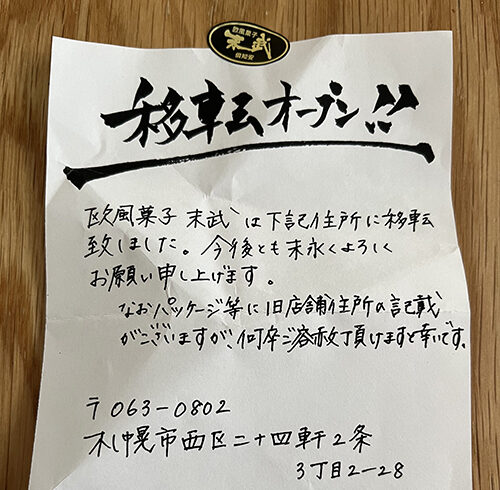 欧風菓子
末武
倶知安
移転オープン!!
欧風菓子 末武は下記住所に移転
致しました。今後とも末永くよろしく
お願い申し上げます。
なおパッケージ等に旧店舗住所の記載
がございますが、何卒ご容赦頂けますと幸いです。
〒063-0802
札幌市西区二十四軒2条
3丁目2-28